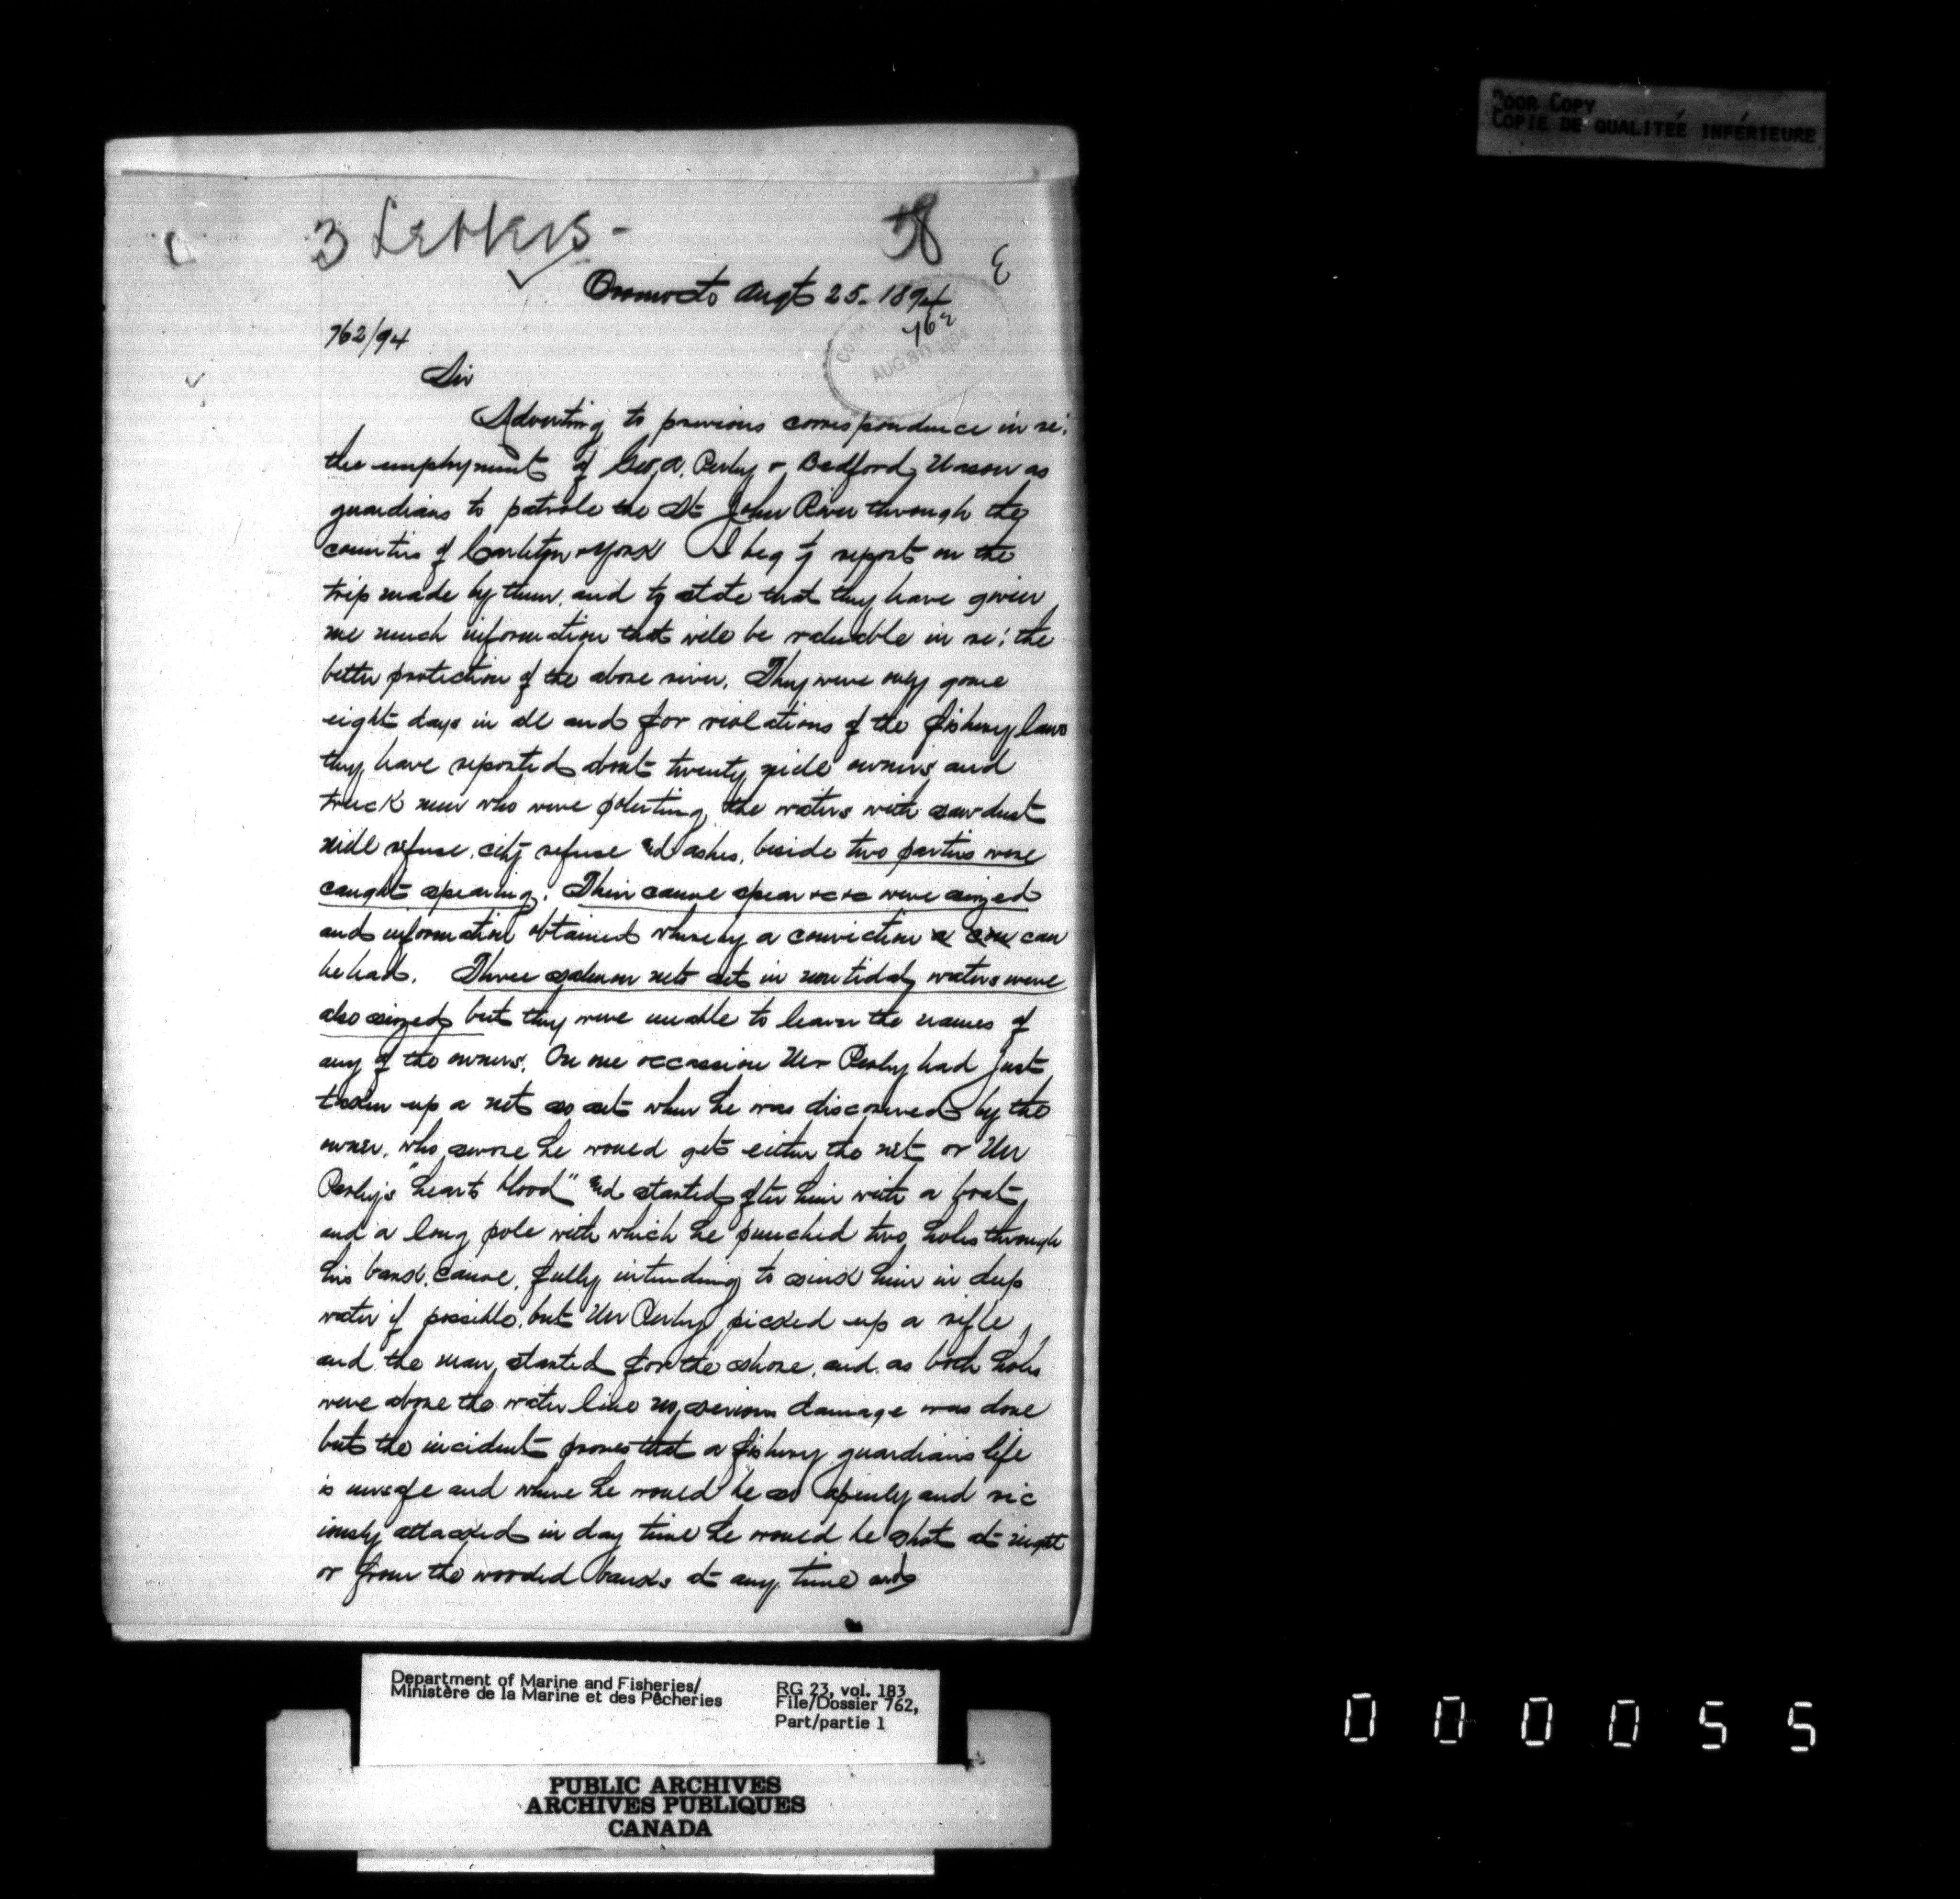 Poor Copy
Copie de qualiteé inférieure
3 Letters -
58
E
Oromocto Augt 25. 1894
762
762/94
AUG 30 1894
Sir
Adverting to previous correspondence in re:
the employment of Geo. A. Perley & Bedford as
guardians to patrole the St John River through the
counties of Carleton & York I beg to report on the
trip made by them, and to state that they have given
me much information that will be valuable in re: the
better protection of the above river. They were only gone
eight days in all and for violations of the fishery laws
they have reported about twenty mill owners and
truck men who were poluting the waters with sawdust
mill refuse, city refuse and ashes, beside two parties were
caught spearing. Their canoe spear &c &c were seized
and information obtained whereby a conviction can
be had. Three salmon nets set in non tidal waters were
also seized but they were unable to learn the names of
any of the owners. On one occassion Mr Perley had just
taken up a net so set when he was discovered by the
owner, who swore he would get either the net or Mr
Perley's "hearts blood" and started after him with a boat
and a long pole with which he punched two holes through
his bark canoe, fully intending to sink him in deep
water if possible, but Mr Perley picked up a rifle,
and the man started for the shore, and as both holes
were above the water line no serious damage was done
but the incident proves that a fishery guardians life
is unsafe and where he would be so openly and vic
iously attacked in day time he would be shot at night
or from the wooded banks at any time and
Department of Marine and Fisheries/
Ministère de la Marine et des Pêcheries
RG 23, vol. 183
File/Dossier 762,
Part/partie 1
PUBLIC ARCHIVES
ARCHIVES PUBLIQUES
CANADA
000055